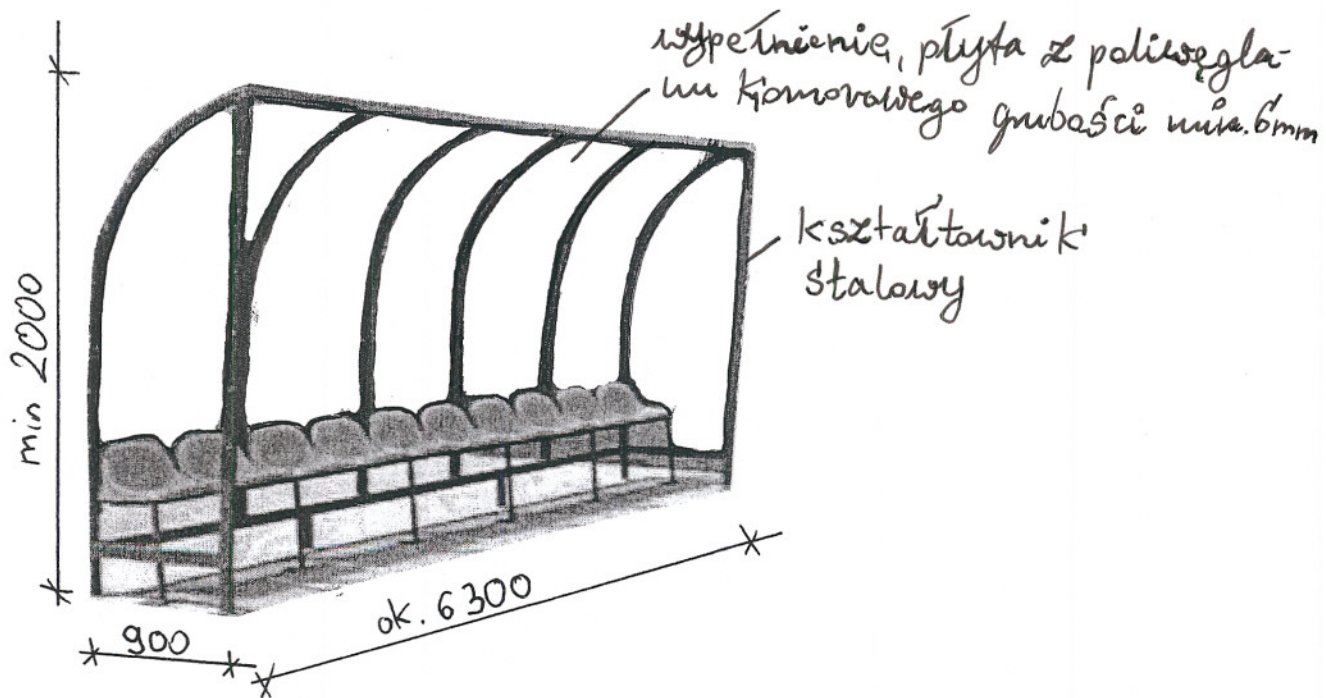 wypełnienie, płyta z poliwęgla-
nu komorowego grubości min. 6mm
kształtownik
stalowy
min 2000
900
ok. 6300